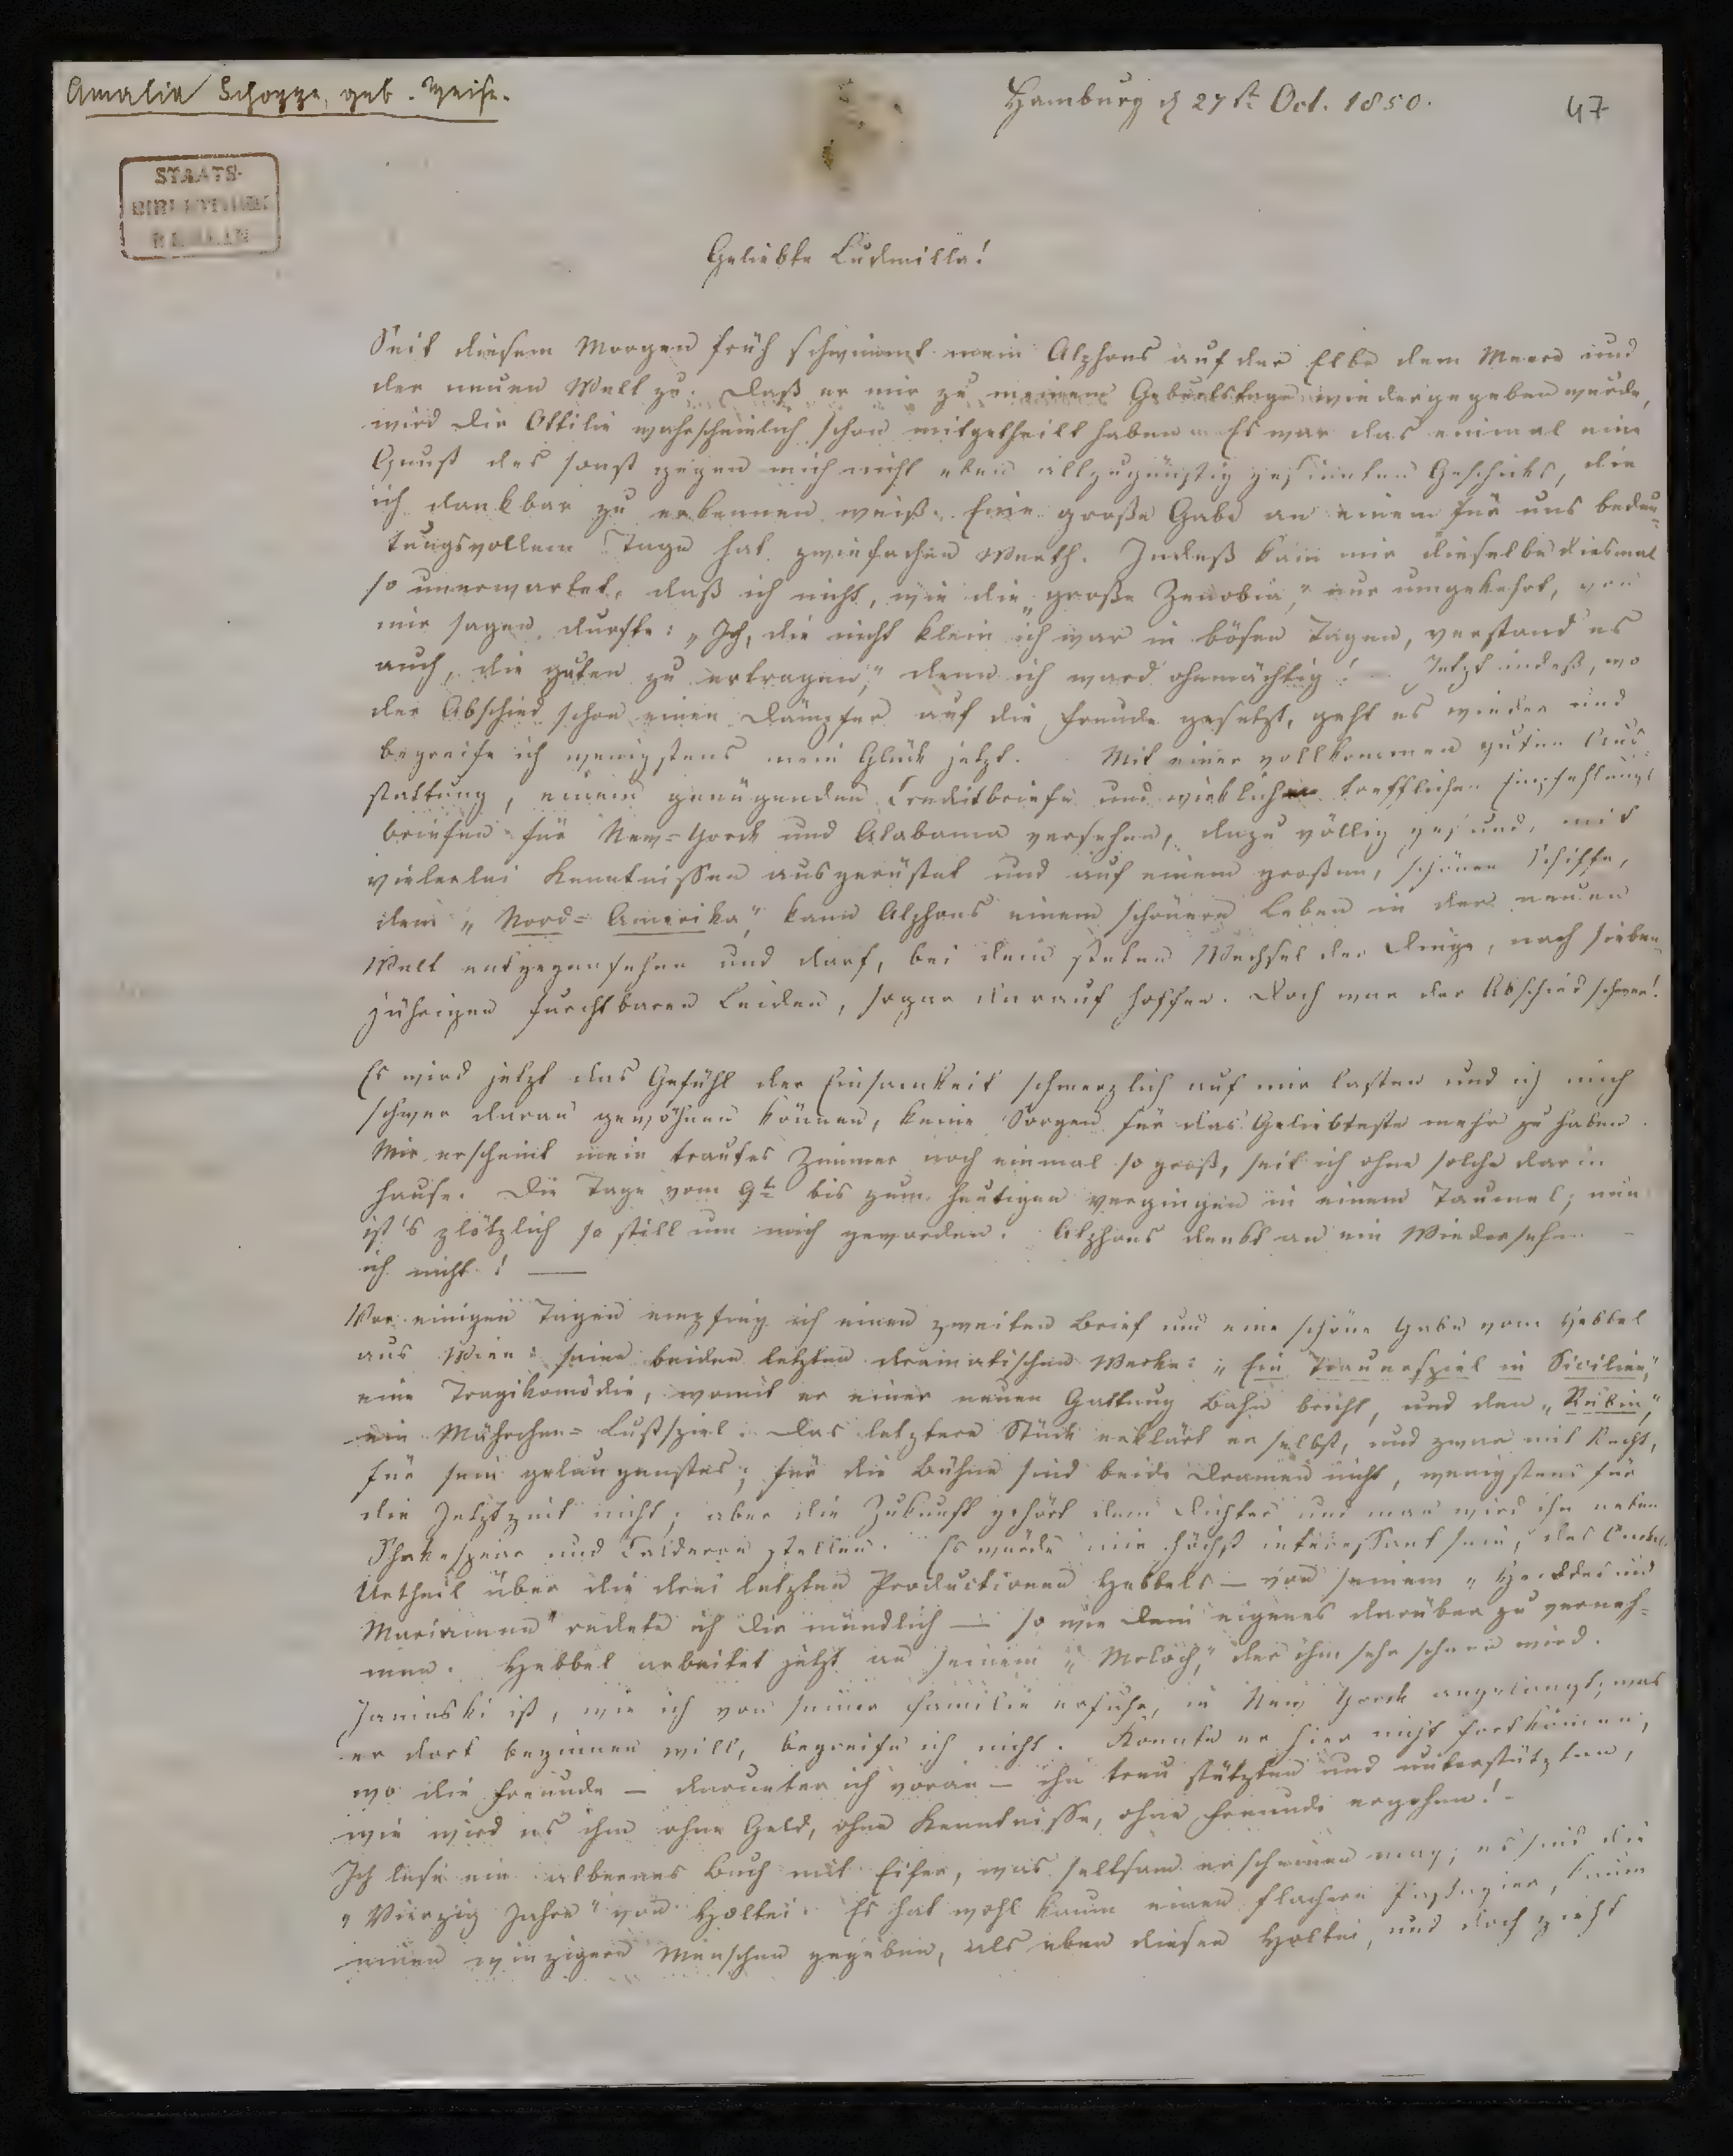 Amalia Schoppe, geb. Weise.
Hamburg d 27st Oct. 1850.
47
STAATS-
BIBLIOTHEK
BERLIN
Geliebte Ludmilla!
Seit diesem Morgen früh schwimmt mein Alphons auf der Elbe dem Meere und
der neuen Welt zu. Daß er mir zu meinem Geburtstage wiedergegeben wurde,
wird Dir Ottilie wahrscheinlich schon mitgetheilt haben. Es war das einmal eine
Gunst des sonst gegen mich nicht eben allzugünstig gesinnten Geschicks, die
ich dankbar zu erkennen weiß. Eine große Gabe an einem für uns bedeu-
tungsvollem Tage hat zwiefachen Werth. Indeß kam mir dieselbe diesmal
so unerwartet, daß ich nicht, wie die „große Zenobia," nur umgekehrt, von
mir sagen durfte: „Ich, die nicht klein ich war in bösen Tagen, verstand es
auch, die guten zu ertragen," denn ich ward ohnmächtig! Jetzt indeß, wo
der Abschied schon einen Dämpfer auf die Freude gesetzt, geht es wieder und
begreife ich wenigstens mein Glück jetzt. Mit einer vollkommen guten Aus-
stattung, einem genügenden Creditbriefe und wirklich trefflichen Empfehlungs
briefen für New=Yorck und Alabama versehen, dazu völlig gesund, mit
vielerlei Kenntnissen ausgerüstet und auf einem großen, schönen Schiffe,
dem „Nord=Amerika," kann Alphons einem schönern Leben in der neuen
Welt entgegensehen und darf, bei dem steten Wechsel der Dinge, nach sieben-
jährigen furchtbaren Leiden, sogar darauf hoffen. Doch war der Abschied schwer!
Es wird jetzt das Gefühl der Einsamkeit schmerzlich auf mir lasten und ich mich
schwer daran gewöhnen können, keine Sorgen für das Geliebteste mehr zu haben.
Mir erscheint mein trautes Zimmer noch einmal so groß, seit ich ohne solche darin
hause. Die Tage vom 9t bis zum heutigen vergingen in einem Taumel; nun
ist's plötzlich so still um mich geworden. Alphons denkt an ein Wiedersehn –
ich nicht! —
Vor einigen Tagen empfing ich einen zweiten Brief und eine schöne Gabe vom Hebbel
aus Wien: seine beiden letzten dramatischen Werke: „Ein Trauerspiel in Sicilien,"
eine Tragikomödie, womit er einer neuen Gattung Bahn bricht, und den „Rubin,"
ein Mährchen=Lustspiel. Das letztere Stück erklärt er selbst, und zwar mit Recht,
für sein gelungenstes; für die Bühne sind beide Dramen nicht, wenigstens für
die Jetztzeit nicht; aber die Zukunft gehört dem Dichter und man wird ihn neben
Shakespear und Calderon stellen. Es würde mir höchst interessant sein, des Onkels
Urtheil über die drei letzten Productionen Hebbels — von seinem „Herodes und
Mariamne" redete ich Dir mündlich — so wie Dein eigenes darüber zu verneh=
men. Hebbel arbeitet jetzt an seinem „Moloch," der ihm sehr schwer wird.
Janinski ist, wie ich von seiner Familie erfuhr, in New Yorck angelangt; was
er dort beginnen will, begreife ich nicht. Konnte er hier nicht fortkommen,
wo die Freunde — darunter ich voran — ihn treu stützten und unterstützten,
wie wird es ihm ohne Geld, ohne Kenntnisse, ohne Freunde ergehen! –
Ich lese ein albernes Buch mit Eifer, was seltsam erscheinen mag; es sind die
„Vierzig Jahre" von Holtei. Es hat wohl kaum einen flachern , kaum
einen winzigern Menschen gegeben, als eben diesen Holtei, und doch zieht